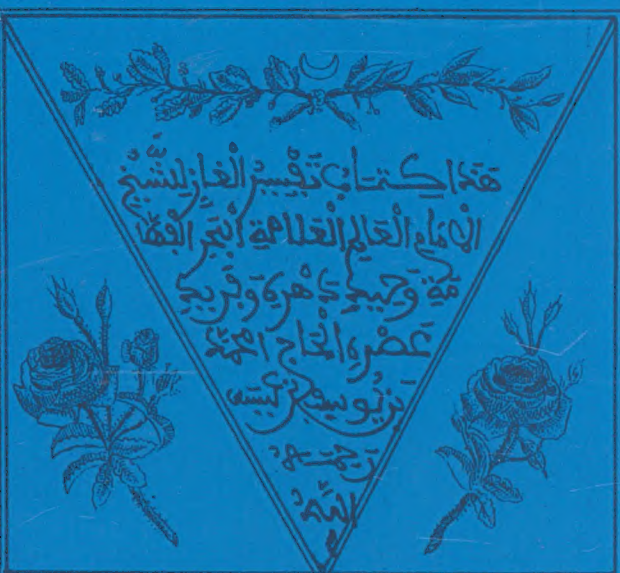 هذا كتاب تفسير الغاز للشيخ
الامام العالم العلامة البحر الفها
مة وحيد دهره وفريد
عصره الحاج امحمد
بن يوسف
رحمه
الله